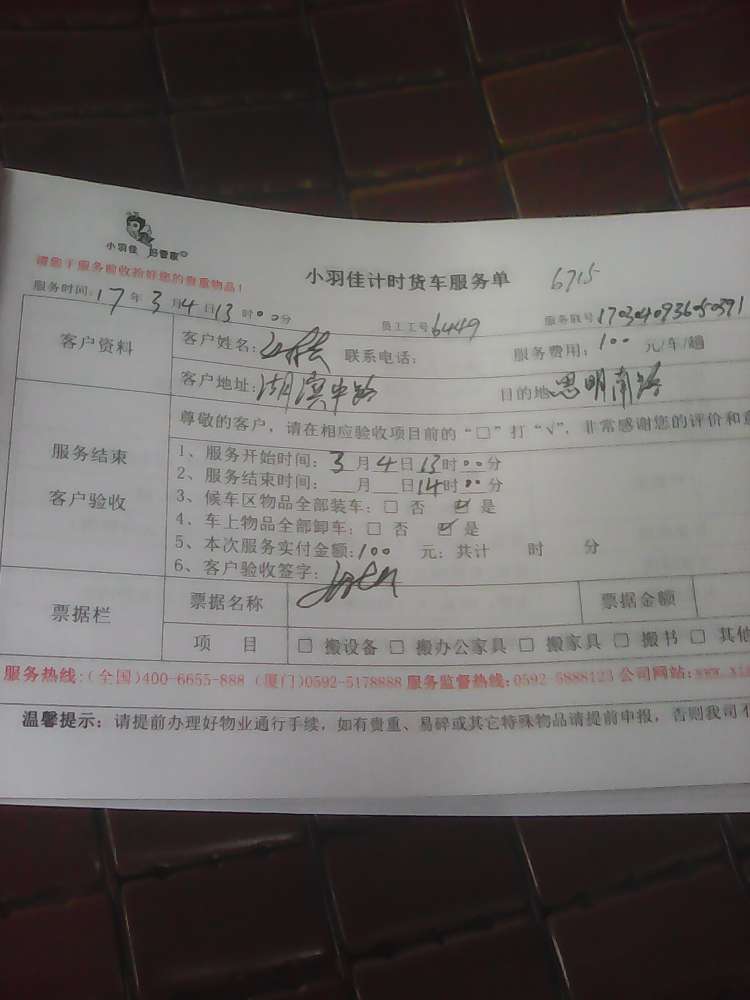 小羽佳 好管家
请您于服务前收拾好您的贵重物品！
小羽佳计时货车服务单 6715
服务时间：17年3月4日13时00分 员工工号6449 服务账号
客户资料 客户姓名： 联系电话： 服务费用：100 元/车/趟
客户地址：湖滨中路 目的地 思明南路
尊敬的客户，请在相应验收项目前的“□”打“√”，非常感谢您的评价和
服务结束
客户验收
1、服务开始时间：3月4日13时00分
2、服务结束时间： 月 日14时00分
3、候车区物品全部装车：□ 否 ☑ 是
4、车上物品全部卸车：□ 否 ☑ 是
5、本次服务实付金额：100 元；共计 时 分
6、客户验收签字：
票据栏 票据名称 票据金额
项 目 □ 搬设备 □ 搬办公家具 □ 搬家具 □ 搬书 □ 其他
服务热线：(全国)400-6655-888 (厦门)0592-5178888 服务监督热线：0592-5888123 公司网站：www.xi
温馨提示：请提前办理好物业通行手续，如有贵重、易碎或其它特殊物品请提前申报，否则我司